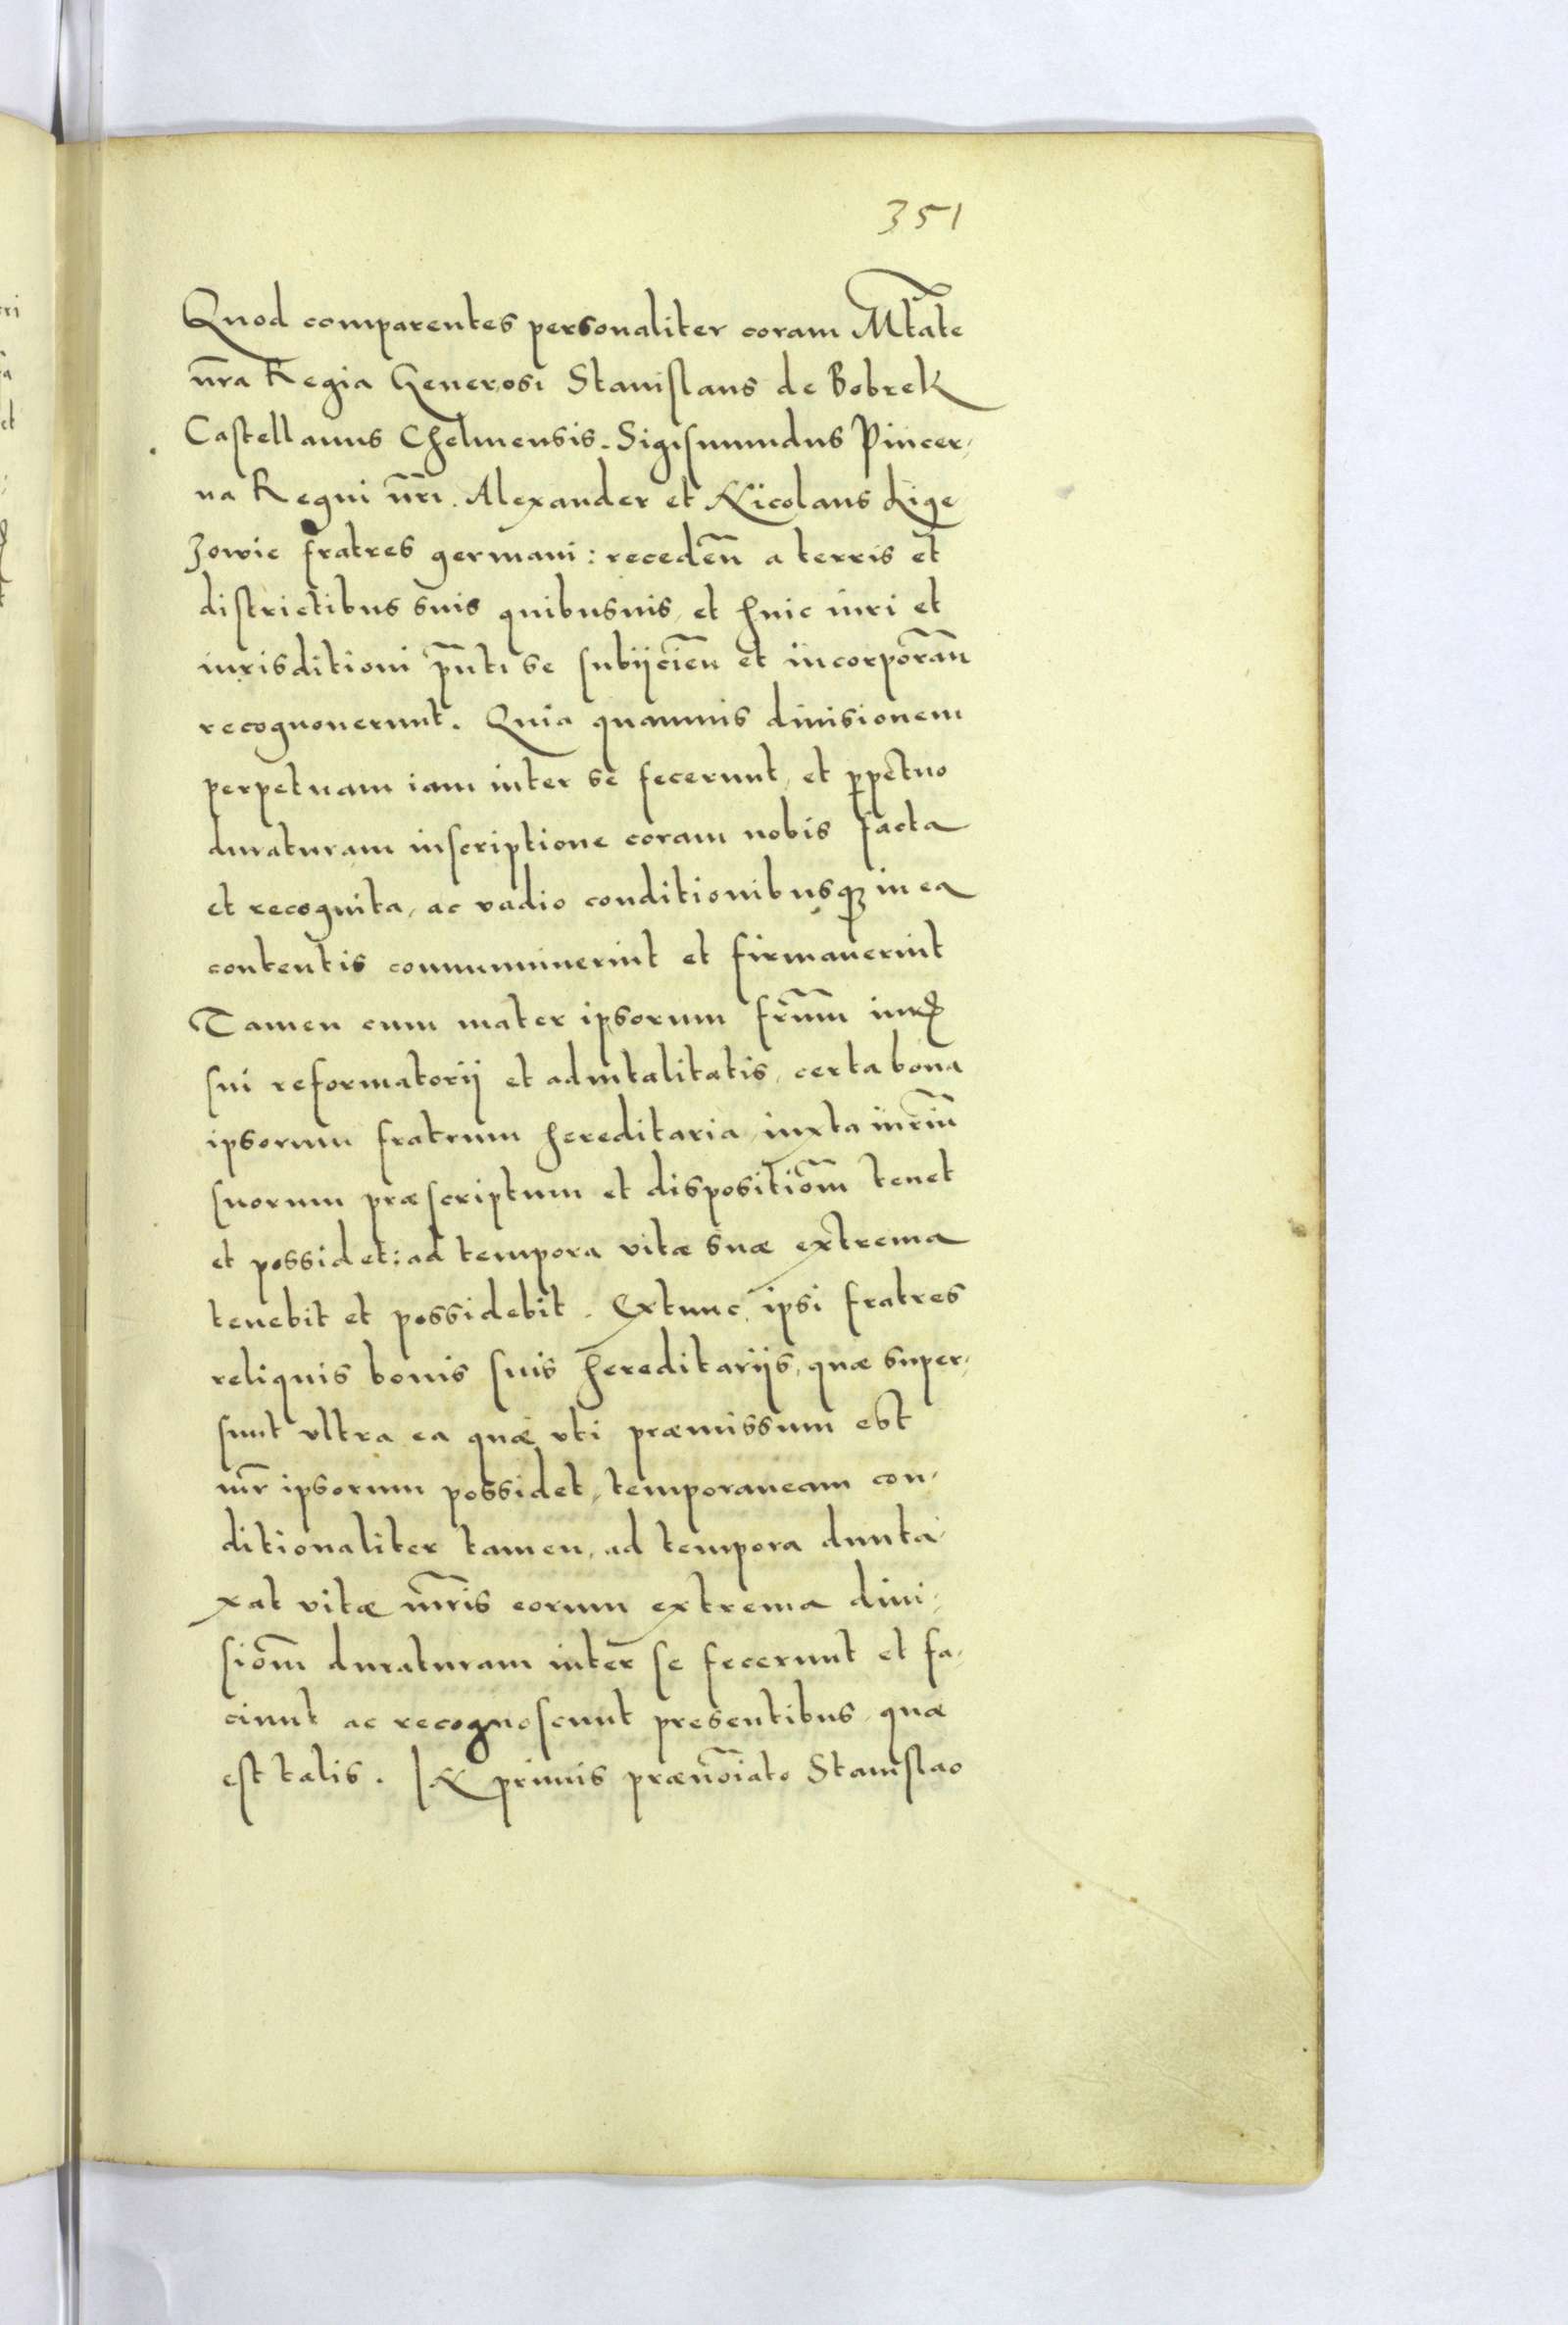 351
Quod comparentes personaliter coram Mtate
nr̃a Regia Generosi Stanislaus de Bobrek
Castellanus Chelmensis. Sigismundus Pincer-
na Regni nr̃i. Alexander et Nicolaus Lige
zowie fratres germani: receden̄ a terris et
districtibus suis quibusuis, et huic iuri et
iurisditioni p̄nti se subijcien̄ et incorporan̄
recognouerunt. Quia quamuis diuisionem
perpetuam iam inter se fecerunt, et ꝑpetuo
duraturam inscriptione coram nobis facta
et recognita, ac vadio conditionibusqꝫ in ea
contentis communiuerint et firmauerint
Tamen cum mater ipsorum fr̄um
sui reformatorij et aduitalitatis, certa bona
ipsorum fratrum hereditaria, iuxta iuriū
suorum præscriptum et dispositiōm tenet
et possidet: ad tempora vitæ suæ extrema
tenebit et possidebit. Extunc ipsi fratres
reliquis bonis suis hereditarijs, quæ super-
sunt vltra ea quæ vti præmissum est
mr̄ ipsorum possidet, temporaneam con-
ditionaliter tamen, ad tempora dunta-
xat vitæ mr̄is eorum extrema diui-
siōm duraturam inter se fecerunt et fa-
ciunt ac recognoscunt presentibus, quæ
est talis. IN primis prænōiato Stanislao